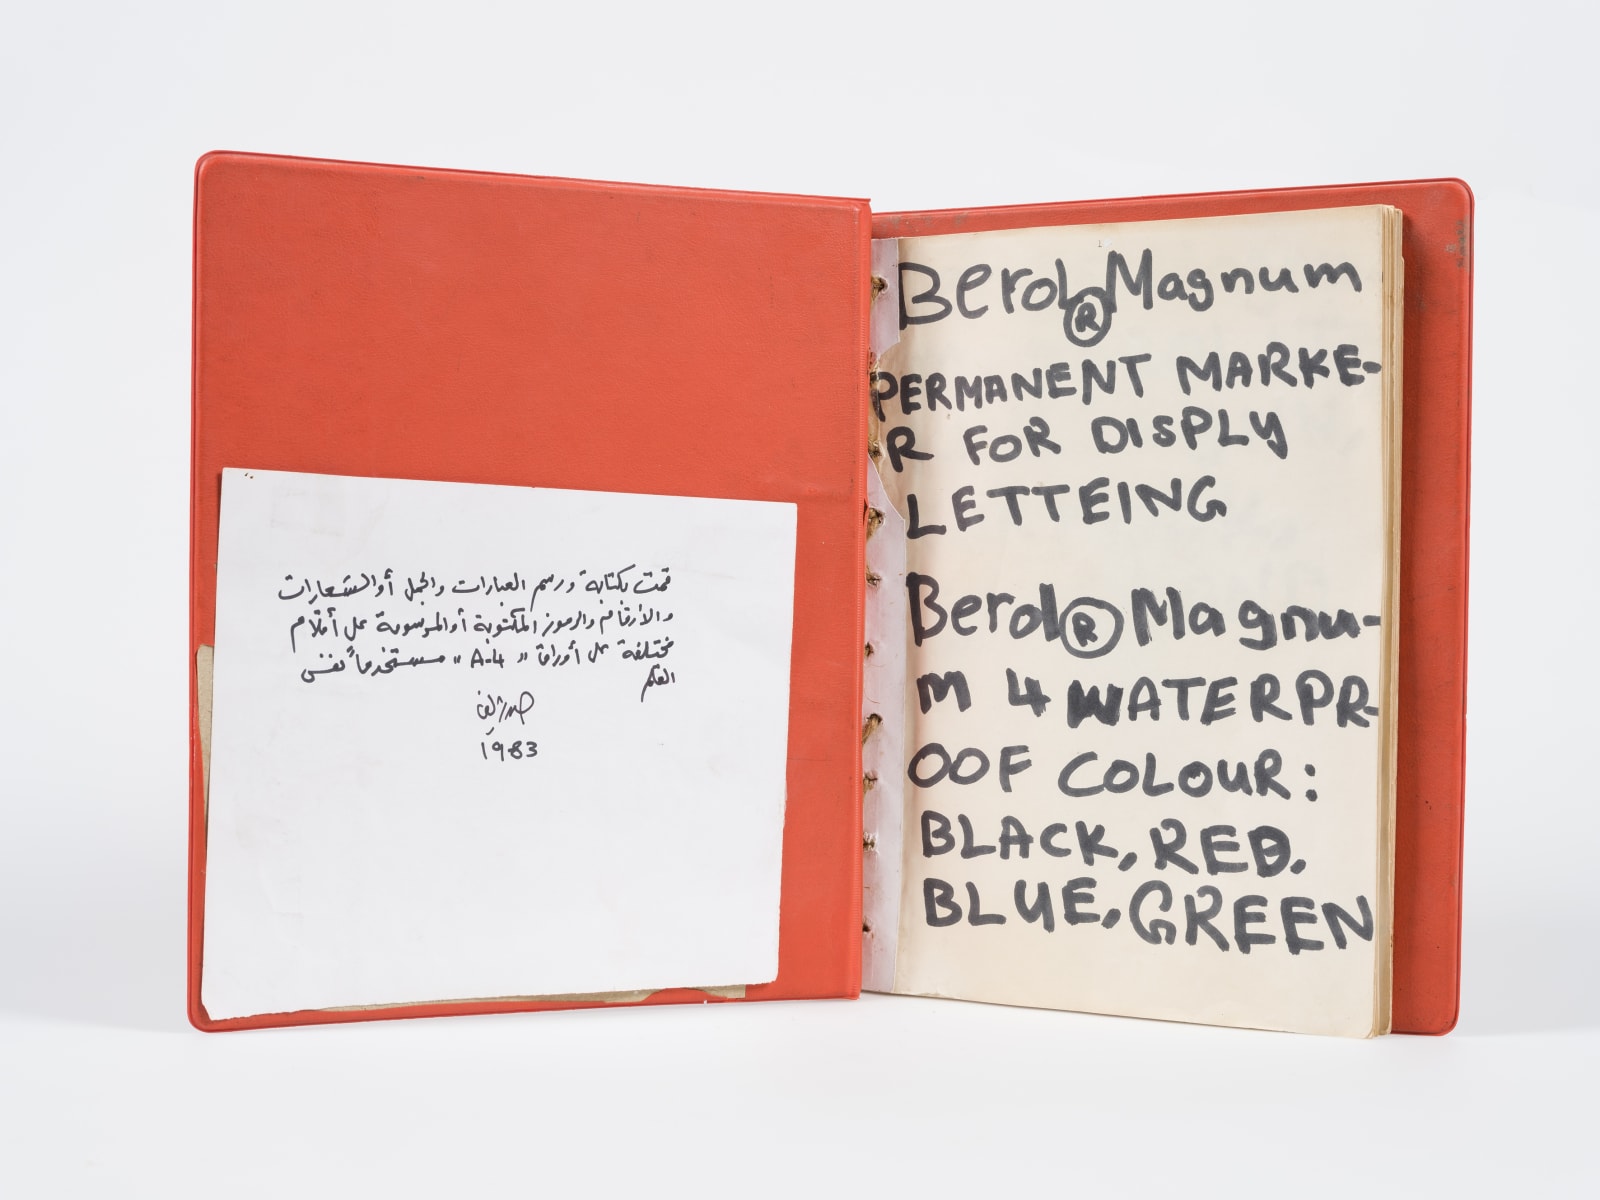 قمت بكتابة ورسم العبارات والجمل أو الشعارات
والأرقام والرموز المكتوبة أو المرسومة على أقلام
مختلفة على أوراق "A-4" مستخدماً نفس
القلم
حسن شريف
1983
Berol® Magnum
PERMANENT MARKE-
R FOR DISPLY
LETTEING
Berol® Magnu-
m 4 WATERPR-
OOF COLOUR:
BLACK, RED.
BLUE, GREEN